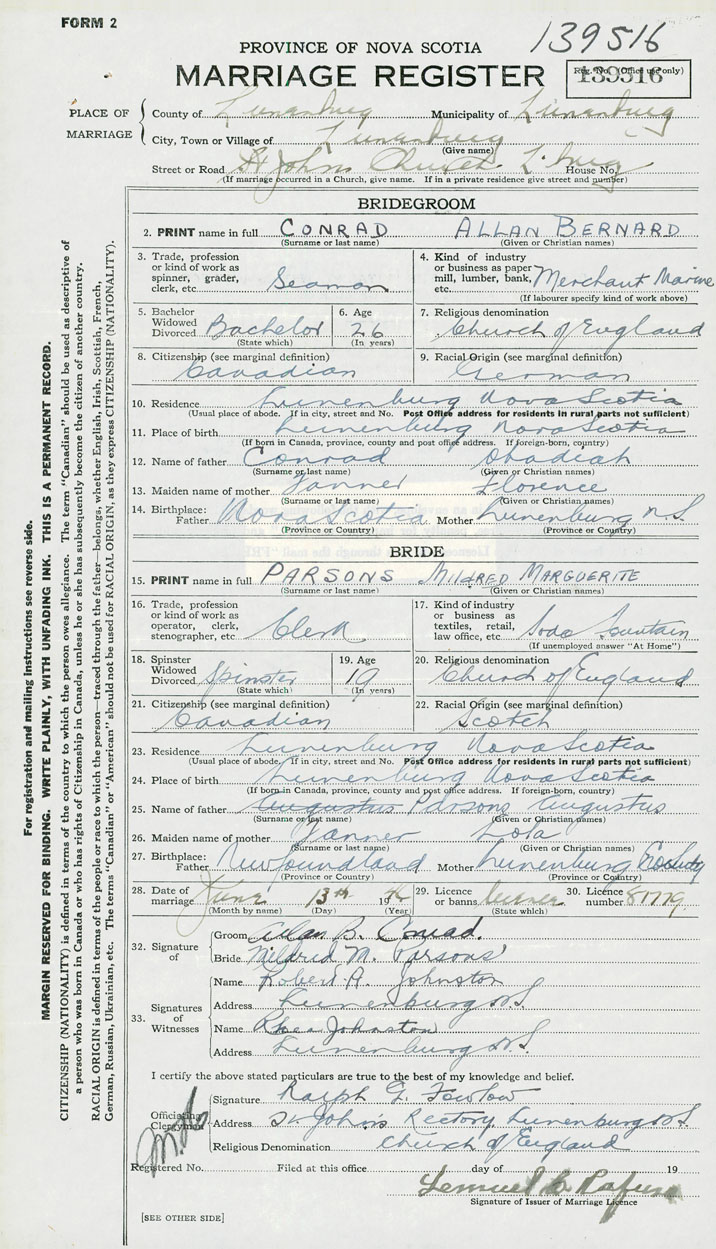 FORM 2
139516
PROVINCE OF NOVA SCOTIA
MARRIAGE REGISTER
Reg. No. (Office use only)
139516
PLACE OF MARRIAGE
County of Lunenburg Municipality of Lunenburg
City, Town or Village of Lunenburg
(Give name)
Street or Road St Johns Church L'burg House No.
(If marriage occurred in a Church, give name. If in a private residence give street and number)
BRIDEGROOM
2. PRINT name in full CONRAD ALLAN BERNARD
(Surname or last name) (Given or Christian names)
3. Trade, profession or kind of work as spinner, grader, clerk, etc. Seaman
4. Kind of industry or business as paper mill, lumber, bank, etc. Merchant Marine
(If labourer specify kind of work above)
5. Bachelor Widowed Divorced Bachelor
(State which)
6. Age 26
(In years)
7. Religious denomination
Church of England
8. Citizenship (see marginal definition)
Canadian
9. Racial Origin (see marginal definition)
German
10. Residence Lunenburg Nova Scotia
(Usual place of abode. If in city, street and No. Post Office address for residents in rural parts not sufficient)
11. Place of birth Lunenburg Nova Scotia
(If born in Canada, province, county and post office address. If foreign-born, country)
12. Name of father Conrad Obadiah
(Surname or last name) (Given or Christian names)
13. Maiden name of mother Tanner Florence
(Surname or last name) (Given or Christian names)
14. Birthplace: Father Nova Scotia Mother Lunenburg N.S.
(Province or Country) (Province or Country)
BRIDE
15. PRINT name in full PARSONS MILDRED MARGUERITE
(Surname or last name) (Given or Christian names)
16. Trade, profession or kind of work as operator, clerk, stenographer, etc. Clerk
17. Kind of industry or business as textiles, retail, law office, etc. Soda Fountain
(If unemployed answer "At Home")
18. Spinster Widowed Divorced Spinster
(State which)
19. Age 19
(In years)
20. Religious denomination
Church of England
21. Citizenship (see marginal definition)
Canadian
22. Racial Origin (see marginal definition)
Scotch
23. Residence Lunenburg Nova Scotia
(Usual place of abode. If in city, street and No. Post Office address for residents in rural parts not sufficient)
24. Place of birth Lunenburg Nova Scotia
(If born in Canada, province, county and post office address. If foreign-born, country)
25. Name of father Augustus Parsons Augustus
(Surname or last name) (Given or Christian names)
26. Maiden name of mother Tanner Lola
(Surname or last name) (Given or Christian names)
27. Birthplace: Father Newfoundland Mother Lunenburg
(Province or Country) (Province or Country)
28. Date of marriage June 13th 19
(Month by name) (Day) (Year)
29. Licence or banns license
(State which)
30. Licence number 87779
32. Signature of
Groom Allan B. Conrad.
Bride Mildred M. Parsons
33. Signatures of Witnesses
Name Robert A. Johnston
Address Lunenburg N.S.
Name Rhea Johnston
Address Lunenburg N.S.
I certify the above stated particulars are true to the best of my knowledge and belief.
Officiating Clergyman
Signature Ralph G. Fowlow
Address St. John's Rectory, Lunenburg N.S.
Religious Denomination Church of England
Registered No. Filed at this office day of 19
Lemuel
Signature of Issuer of Marriage Licence
[SEE OTHER SIDE]
For registration and mailing instructions see reverse side.
MARGIN RESERVED FOR BINDING. WRITE PLAINLY, WITH UNFADING INK. THIS IS A PERMANENT RECORD.
CITIZENSHIP (NATIONALITY) is defined in terms of the country to which the person owes allegiance. The term "Canadian" should be used as descriptive of
a person who was born in Canada or who has rights of Citizenship in Canada, unless he or she has subsequently become the citizen of another country.
RACIAL ORIGIN is defined in terms of the people or race to which the person—traced through the father—belongs, whether English, Irish, Scottish, French,
German, Russian, Ukrainian, etc. The terms "Canadian" or "American" should not be used for RACIAL ORIGIN, as they express CITIZENSHIP (NATIONALITY).